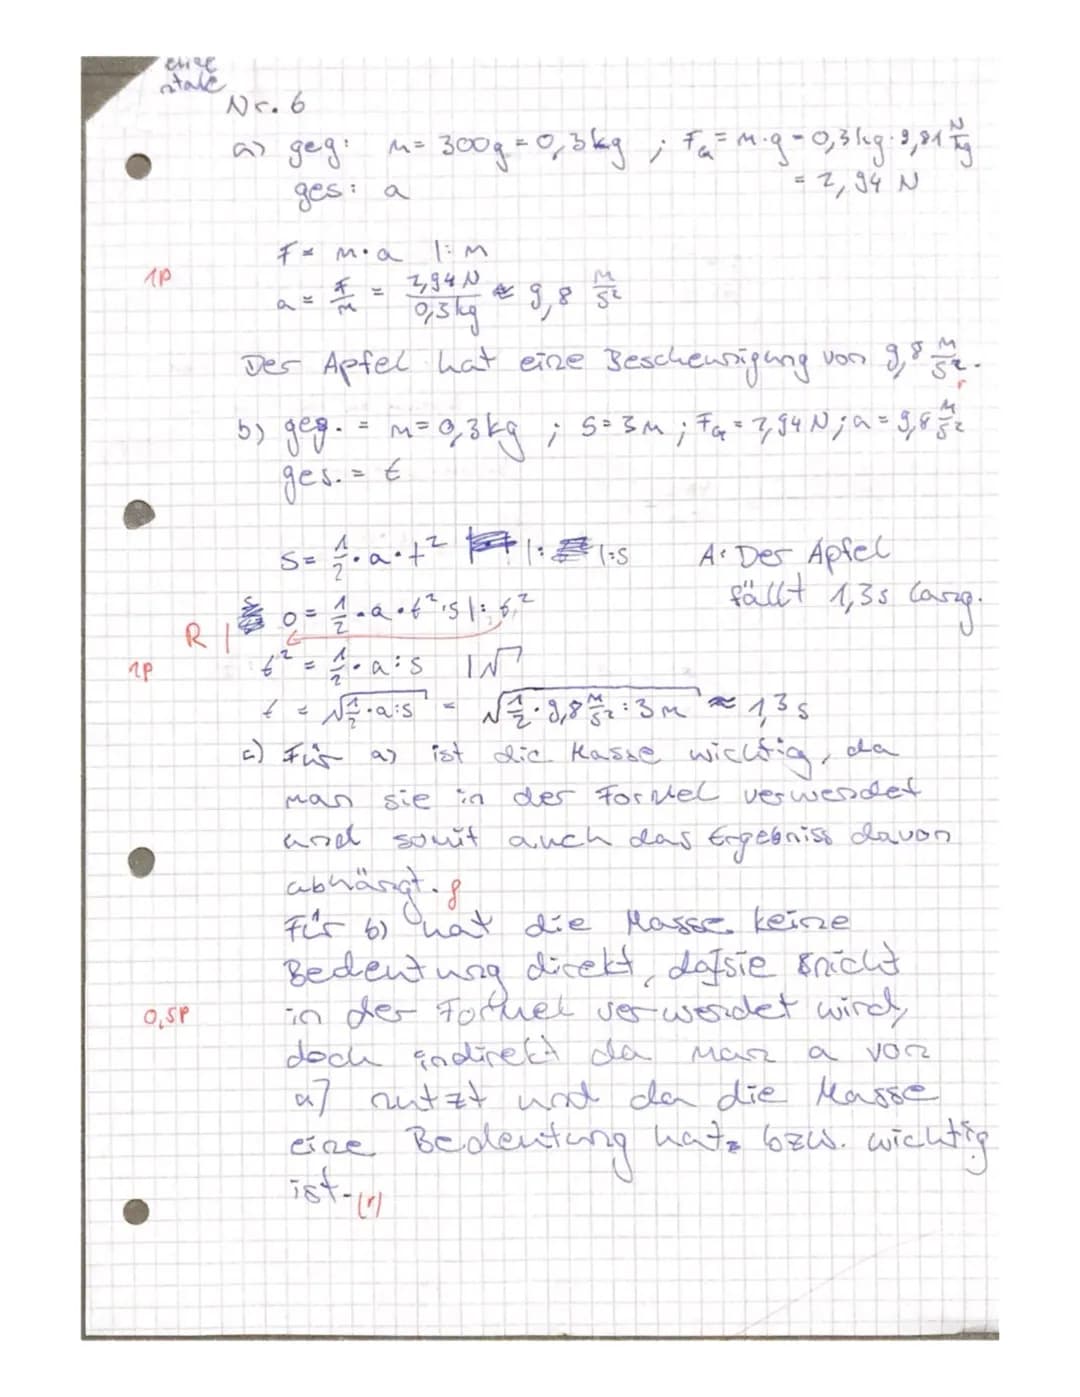 Nr. 6
a) geg: m = 300g = 0,3kg ; F_G = m·g = 0,3kg·9,81 N/kg
= 2,94 N
ges: a
F = m·a |: m
1P
a = F/m = 2,94N/0,3kg ≈ 9,8 m/s²
Der Apfel hat eine Bescheunigung von 9,8 m/s².
r
b) geg. = m = 0,3kg ; s = 3m ; F_G = 2,94N ; a = 9,8 m/s²
ges. = t
s = 1/2 · a · t² |: |:s
A: Der Apfel
fällt 1,3s lang.
R | 0 = 1/2 · a · t² : s |: t²
1P
t² = 1/2 · a : s |√
t = √(1/2 · a:s) = √(1/2 · 9,8 m/s² : 3m) ≈ 1,3s
c) Für a) ist die Masse wichtig, da
man sie in der Formel verwendet
und somit auch das Ergebniss davon
abhängt. f
Für b) hat die Masse keine
Bedeutung direkt, da sie nicht
0,5P
in der Formel verwendet wird,
doch indirekt da man a von
a) nutzt und da die Masse
eine Bedeutung hat, bzw. wichtig
ist. (r)